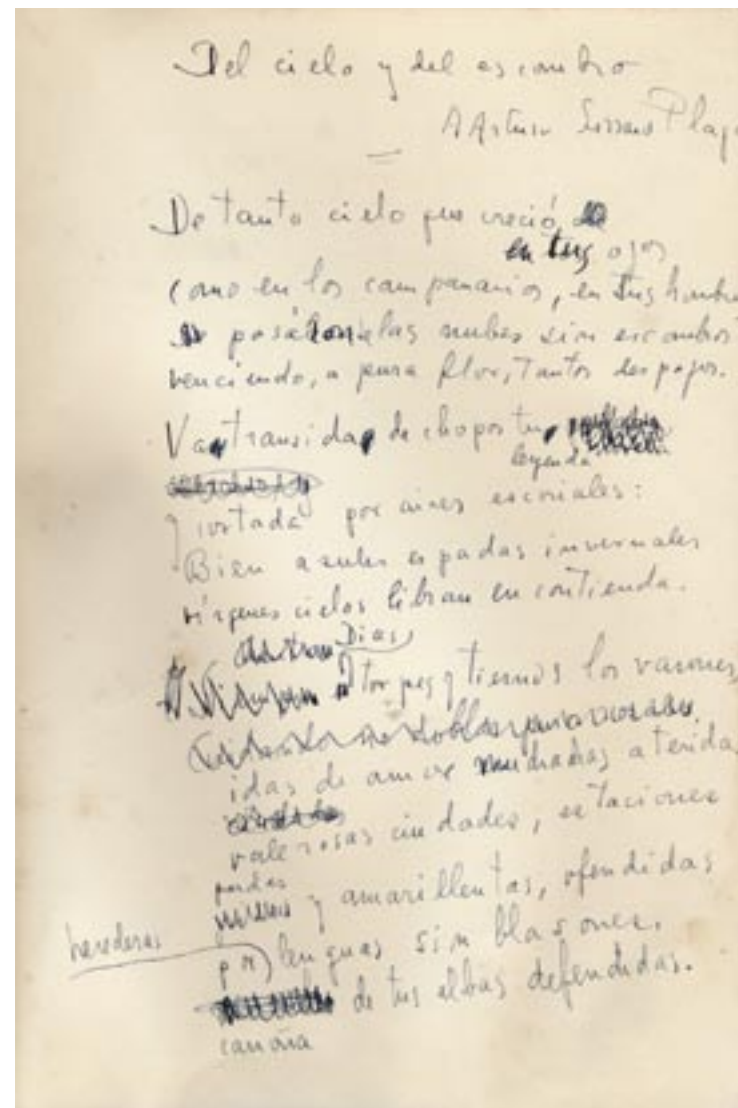 Del cielo y del escombro
A Arturo Serrano Plaj
De tanto cielo que creció
en tus ojos
como en los campanarios, en tus hombr
posáronse las nubes sin escombros
venciendo, a pura flor, tantos despojos.
Va transida de chopos tu
leyenda
cortada por aires escoriales:
Bien azules espadas invernales
vírgenes cielos libran en contienda.
Días
torpes y tiernos los varones,
idas de amor muchachas aterida
valerosas ciudades, estaciones
pardas
y amarillentas, ofendidas
por lenguas sin blasones,
herederas
de tus albas defendidas.